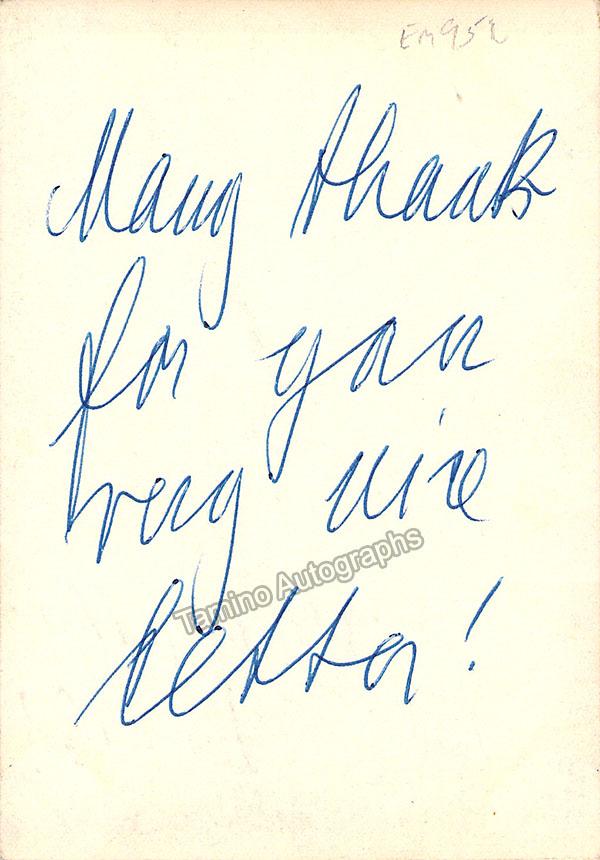 EM952
Many thank
for you
very nice
Tamino Autographs
letter!